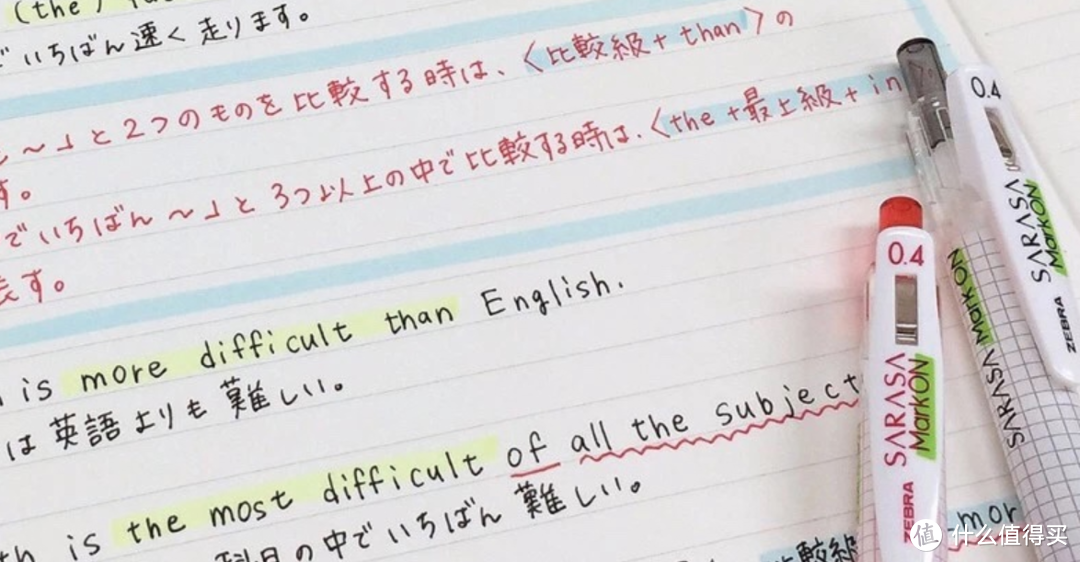 (the)
でいちばん速く走ります。
～」と2つのものを比較する時は、〈比較級+than〉の
す。
でいちばん～」と3つ以上の中で比較する時は、〈the+最上級+in
表す。
is more difficult than English.
は英語よりも難しい。
is the most difficult of all the subject
科目の中でいちばん難しい。
比較級
mor
0.4
SARASA
MarkON
ZEBRA
SARASA MarkON
0.4
SARASA
MarkON
ZEBRA
值 什么值得买